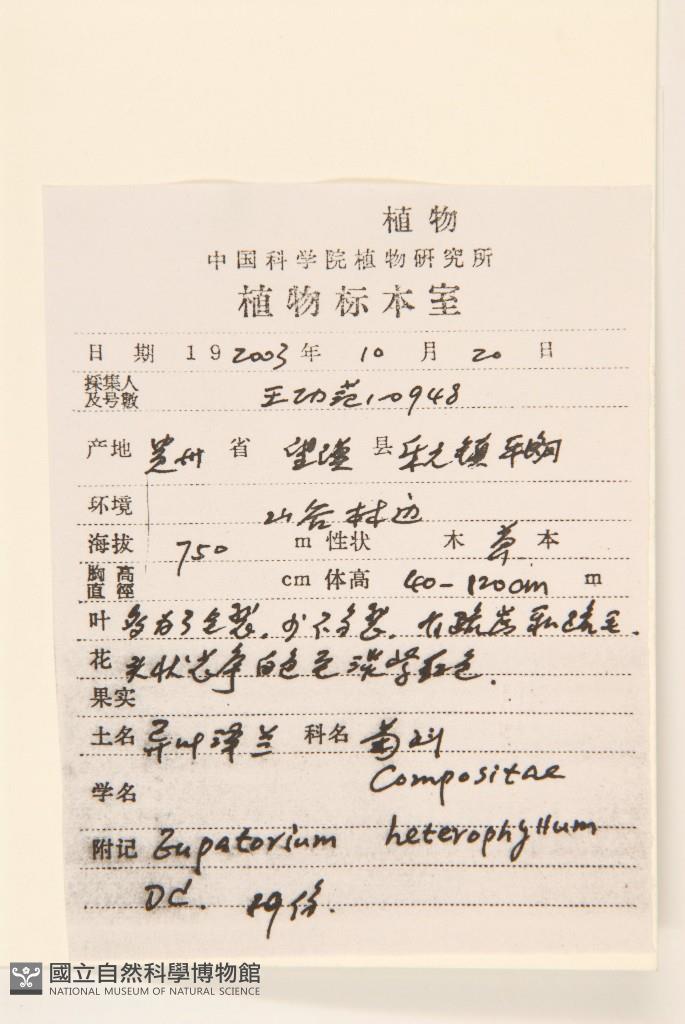 植物
中国科学院植物研究所
植物标本室
日期 19 2003 年 10 月 20 日
採集人及号數 王功范 10948
产地 贵州 省 望谟 县 乐元镇
环境 山谷林边
海拔 750 m 性状 木 草 本
胸高直徑 cm 体高 40-120cm m
叶 多为3全裂.少不分裂.有疏
花 头状花序白色至淡紫红色.
果实
土名 异叶泽兰 科名 菊科
Compositae
学名
附记 Eupatorium heterophyllum
DC. 份.
國立自然科學博物館
NATIONAL MUSEUM OF NATURAL SCIENCE